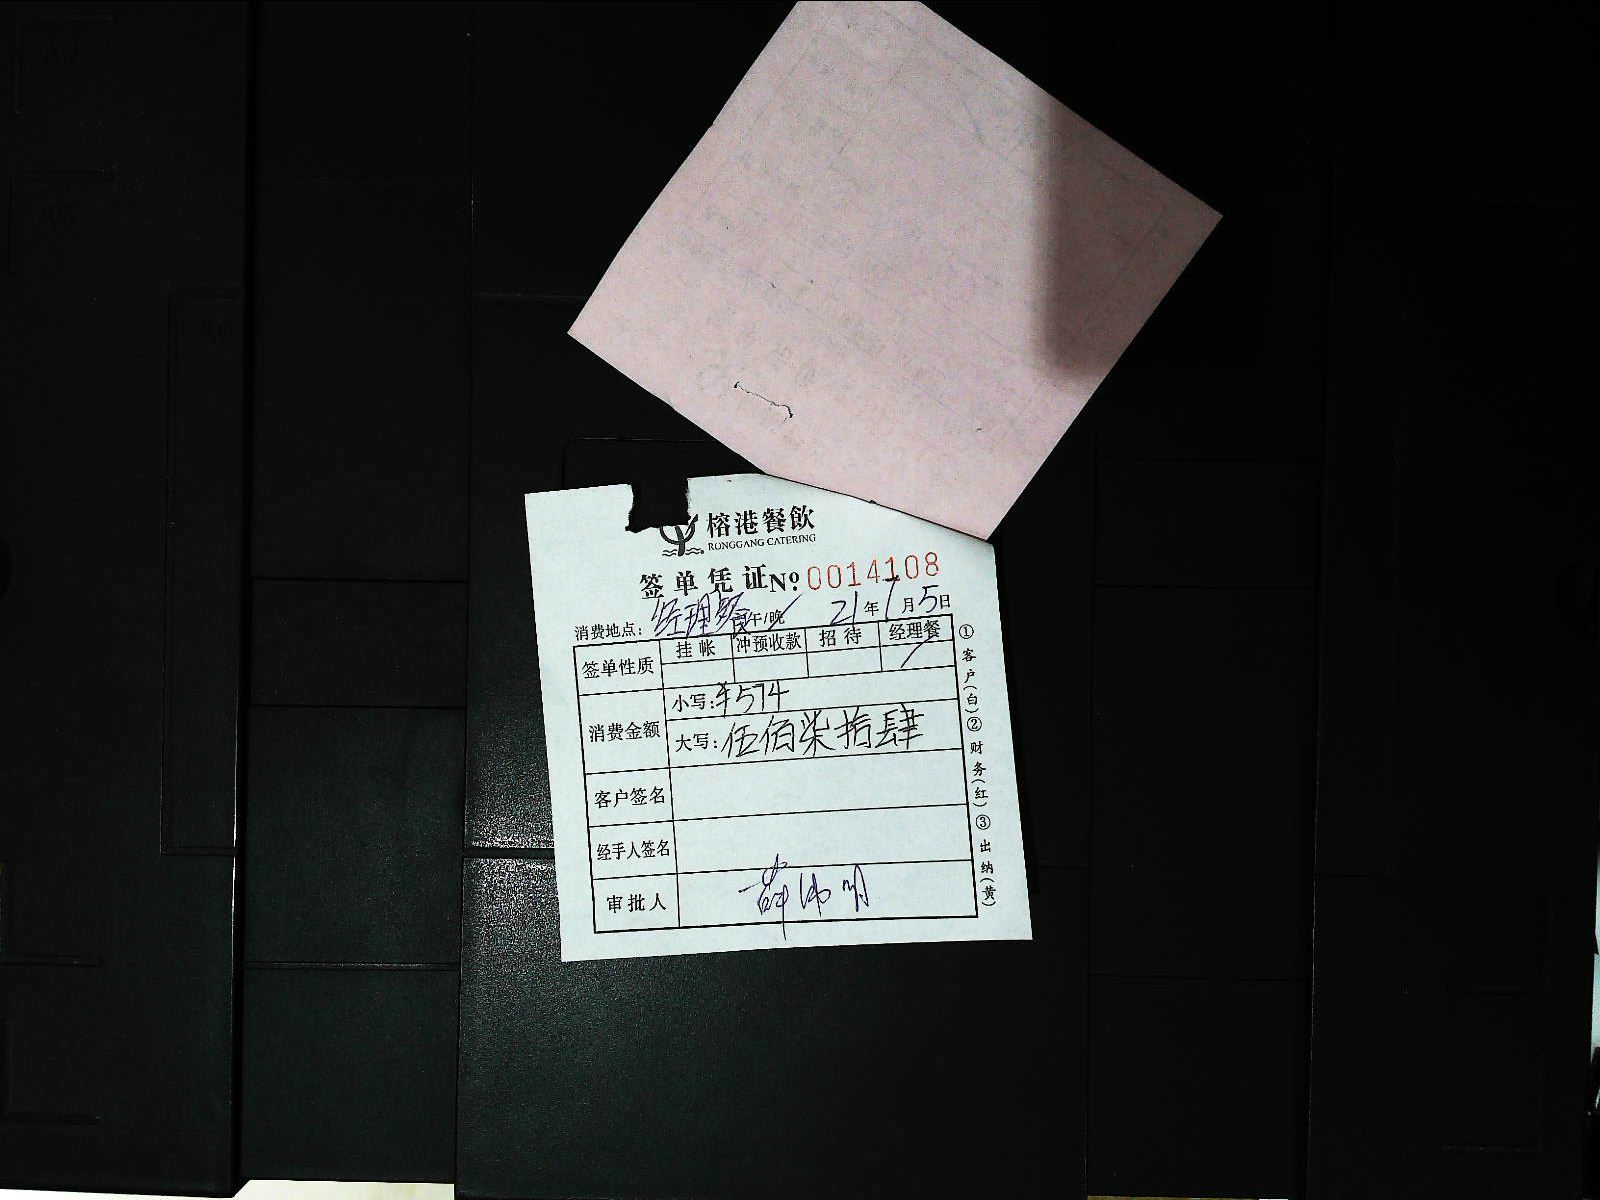 榕港餐飲
RONGGANG CATERING
签单凭证 №0014108
消费地点: 经理餐 午/晚 21年1月5日
签单性质 挂帐 冲预收款 招待 经理餐
消费金额 小写:¥574
大写:伍佰柒拾肆
客户签名
经手人签名
审批人 薛沛明
①客户(白)②财务(红)③出纳(黄)
A4
A5
A6